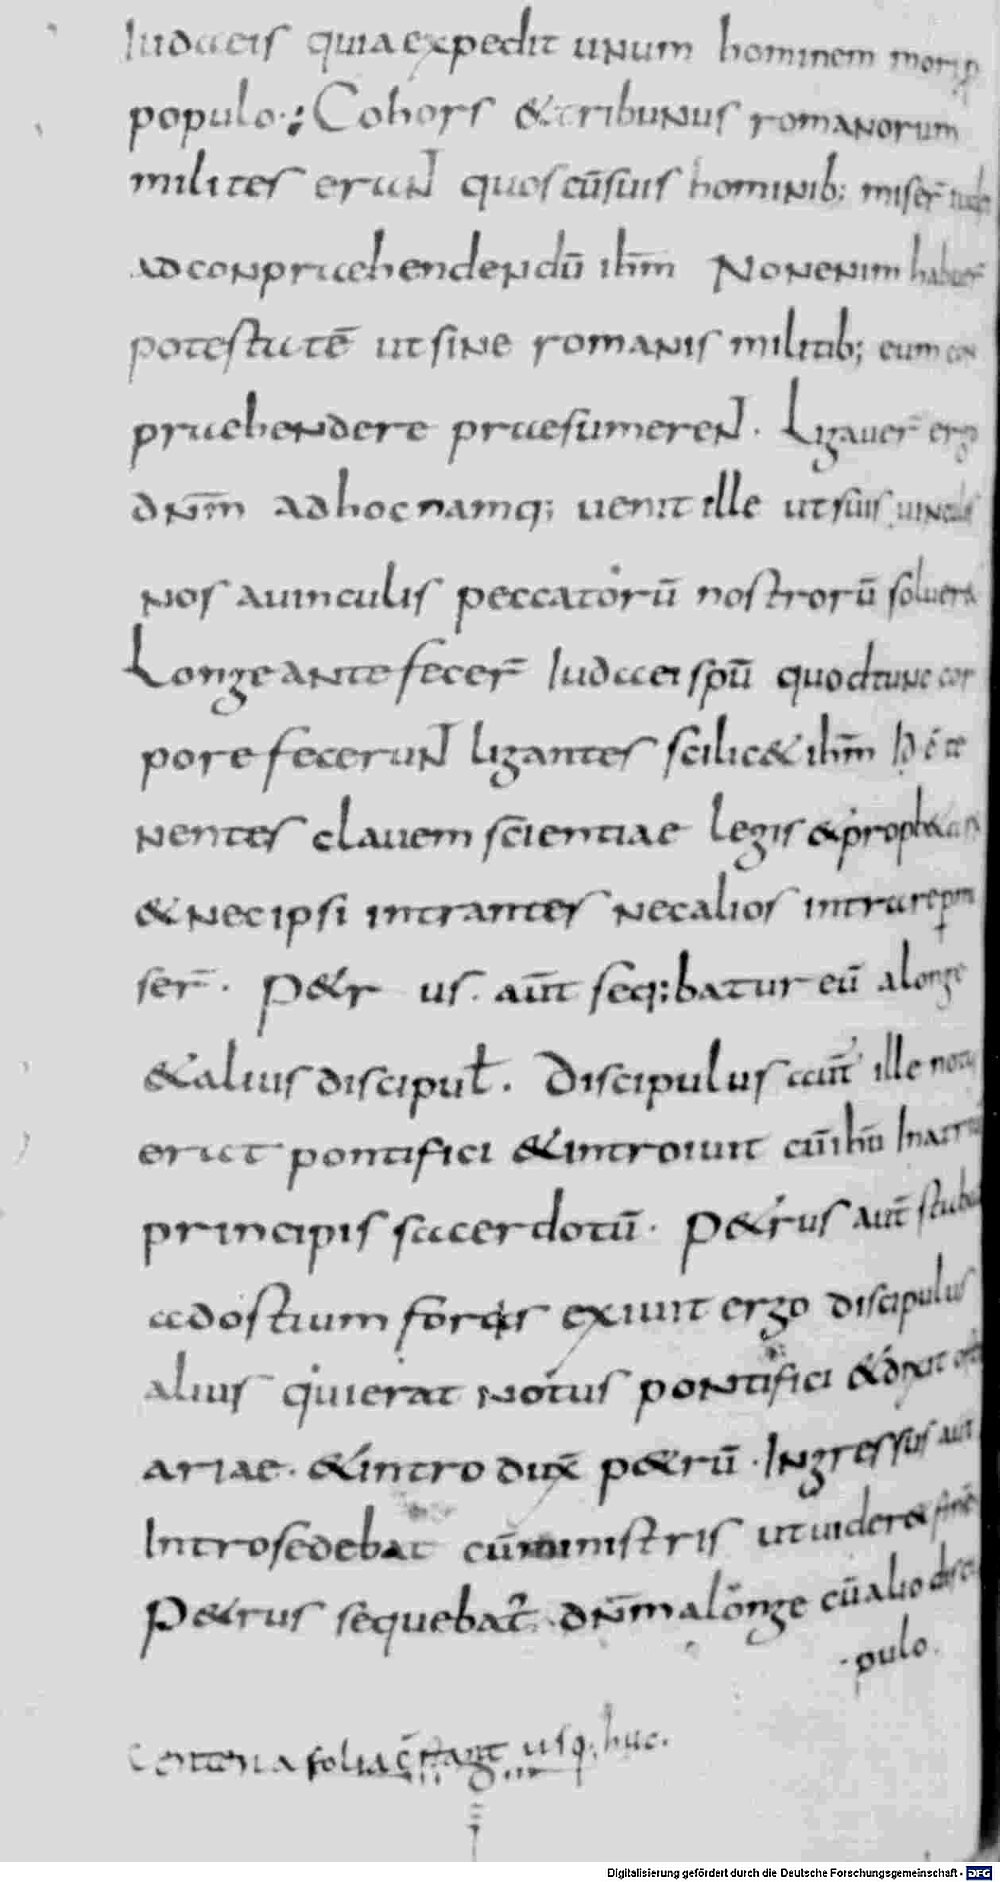 Iudaeis quia expedit unum hominem mori p
populo·; Cohors & tribunus romanorum
milites eruNT quos cū suis hominib; miser̄ iudei
ad conpraehendendū ihm̄ Non enim habuer̄
potestatē ut sine romanis militib; eum con
praehendere praesumereNT. Ligauer̄ ergo
dn̄m ad hoc namq; uenit ille ut suis uinculis
nos a uinculis peccatorū nostrorū solueret
Longe ante fecer̄ Iudaei spū quod tunc cor
pore feceruNT ligantes scilic& ihm̄ id ē te
nentes clauem scientiae legis & proph&ar
& nec ipsi intrantes nec alios intrare pm
ser̄. P&r us. aūt seq;batur eū a longe
& alius discipuł. Discipulus aūt ille notus
erat pontifici & introiuit cū ihū In atriū
principis sacerdotū. P&rus aūt stabat
ad ostium foris exiuit ergo discipulus
alius qui erat notus pontifici & dixit osti
ariae. & introdux̄ p&rū. Ingressus aūt
Intro sedebat cū ministris ut uider& finē
P&rus sequebat̄ dn̄m a longe cū alio disci
pulo.
Centena folia c̄stant usq; huc.
Digitalisierung gefördert durch die Deutsche Forschungsgemeinschaft - DFG